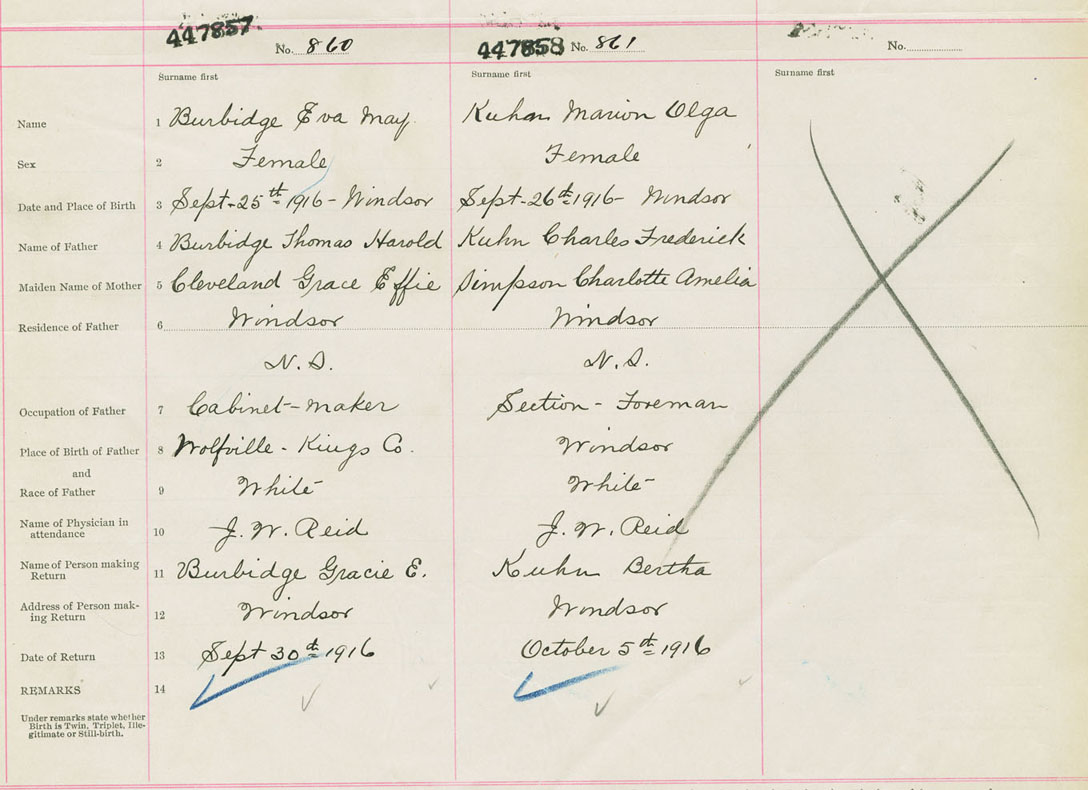 447857. No. 860 447858 No. 861 No.
Surname first Surname first Surname first
Name 1 Burbidge Eva May. Kuhn Marion Olga
Sex 2 Female Female
Date and Place of Birth 3 Sept-25th 1916 - Windsor Sept-26th 1916 - Windsor
Name of Father 4 Burbidge Thomas Harold Kuhn Charles Frederick
Maiden Name of Mother 5 Cleveland Grace Effie Simpson Charlotte Amelia
Residence of Father 6 Windsor Windsor
N.S. N.S.
Occupation of Father 7 Cabinet-maker Section - Foreman
Place of Birth of Father 8 Wolfville - Kings Co. Windsor
and
Race of Father 9 White White
Name of Physician in
attendance 10 J. W. Reid J. W. Reid
Name of Person making
Return 11 Burbidge Gracie E. Kuhn Bertha
Address of Person mak-
ing Return 12 Windsor Windsor
Date of Return 13 Sept 30th 1916 October 5th 1916
REMARKS 14
Under remarks state whether
Birth is Twin, Triplet, Ille-
gitimate or Still-birth.